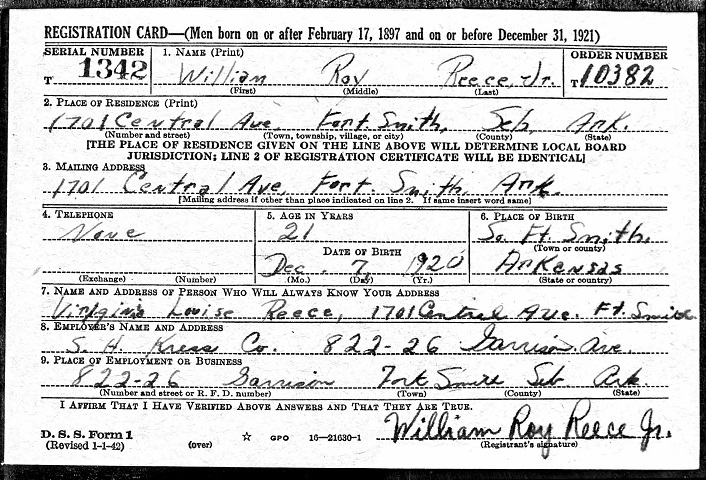 REGISTRATION CARD—(Men born on or after February 17, 1897 and on or before December 31, 1921)
SERIAL NUMBER 1. NAME (Print) ORDER NUMBER
T 1342 William Roy Reece, Jr. T 10382
(First) (Middle) (Last)
2. PLACE OF RESIDENCE (Print)
1701 Central Ave, Fort Smith, Seb, Ark.
(Number and street) (Town, township, village, or city) (County) (State)
[THE PLACE OF RESIDENCE GIVEN ON THE LINE ABOVE WILL DETERMINE LOCAL BOARD
JURISDICTION; LINE 2 OF REGISTRATION CERTIFICATE WILL BE IDENTICAL]
3. MAILING ADDRESS
1701 Central Ave, Fort Smith, Ark.
[Mailing address if other than place indicated on line 2. If same insert word same]
4. TELEPHONE 5. AGE IN YEARS 6. PLACE OF BIRTH
None 21 So. Ft. Smith,
(Town or county)
DATE OF BIRTH
Dec. 7, 1920 Arkansas
(Exchange) (Number) (Mo.) (Day) (Yr.) (State or country)
7. NAME AND ADDRESS OF PERSON WHO WILL ALWAYS KNOW YOUR ADDRESS
Virginia Louise Reece, 1701 Central Ave. Ft. Smith
8. EMPLOYER'S NAME AND ADDRESS
S. H. Kress Co. 822-26 Garrison Ave.
9. PLACE OF EMPLOYMENT OR BUSINESS
822-26 Garrison Fort Smith Seb Ark.
(Number and street or R. F. D. number) (Town) (County) (State)
I AFFIRM THAT I HAVE VERIFIED ABOVE ANSWERS AND THAT THEY ARE TRUE.
William Roy Reece Jr.
D. S. S. Form 1
(Revised 1-1-42) (over) ☆ GPO 16—21630-1 (Registrant's signature)